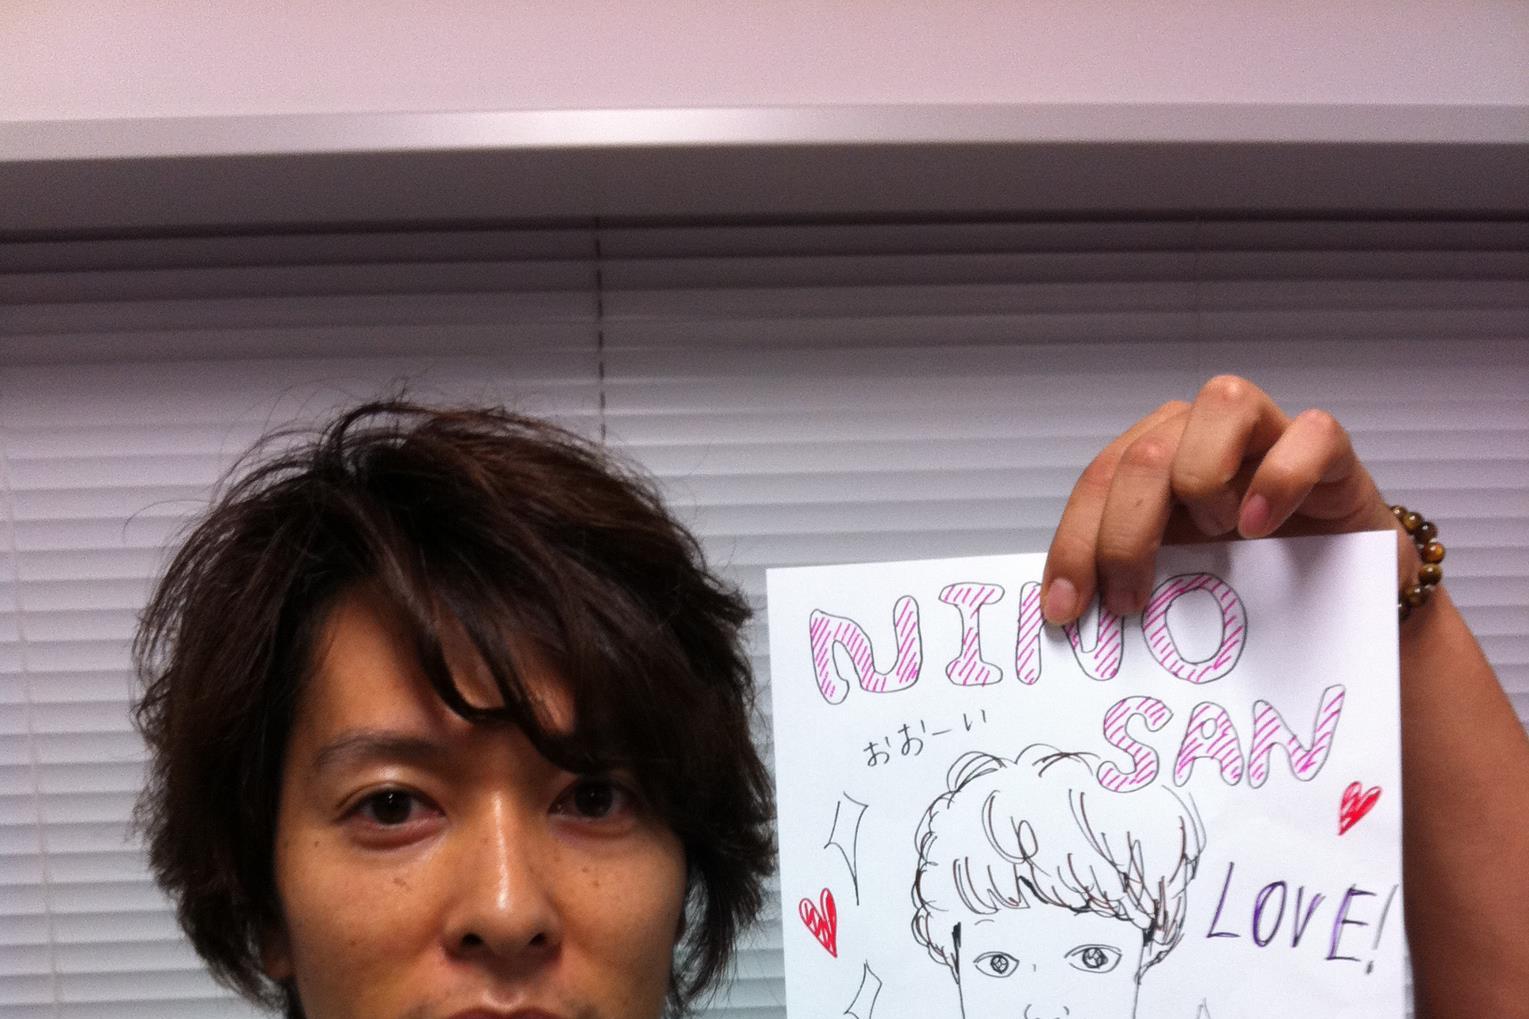 NINO
SAN
おおーい
LOVE!